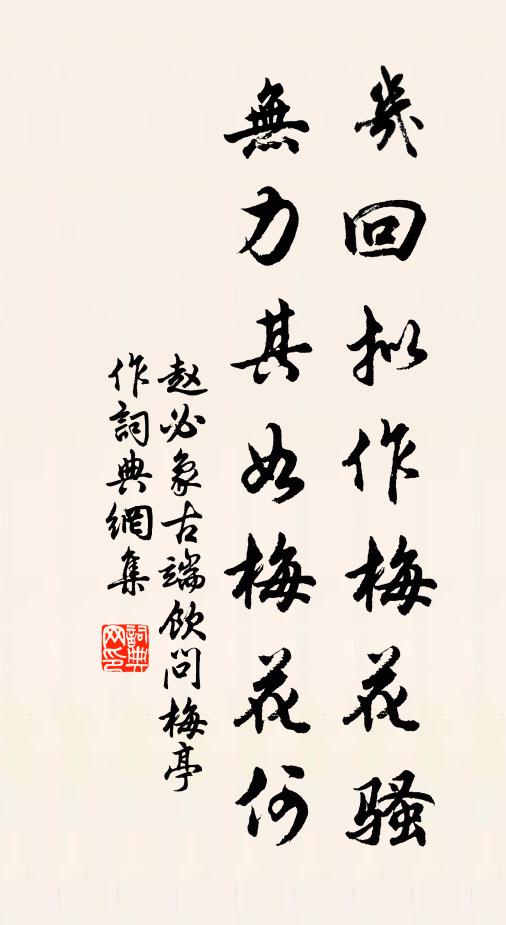 幾回拟作梅花騷
無力其如梅花何
赵必象古端飲問梅亭
作詞典網集
詞典
网印